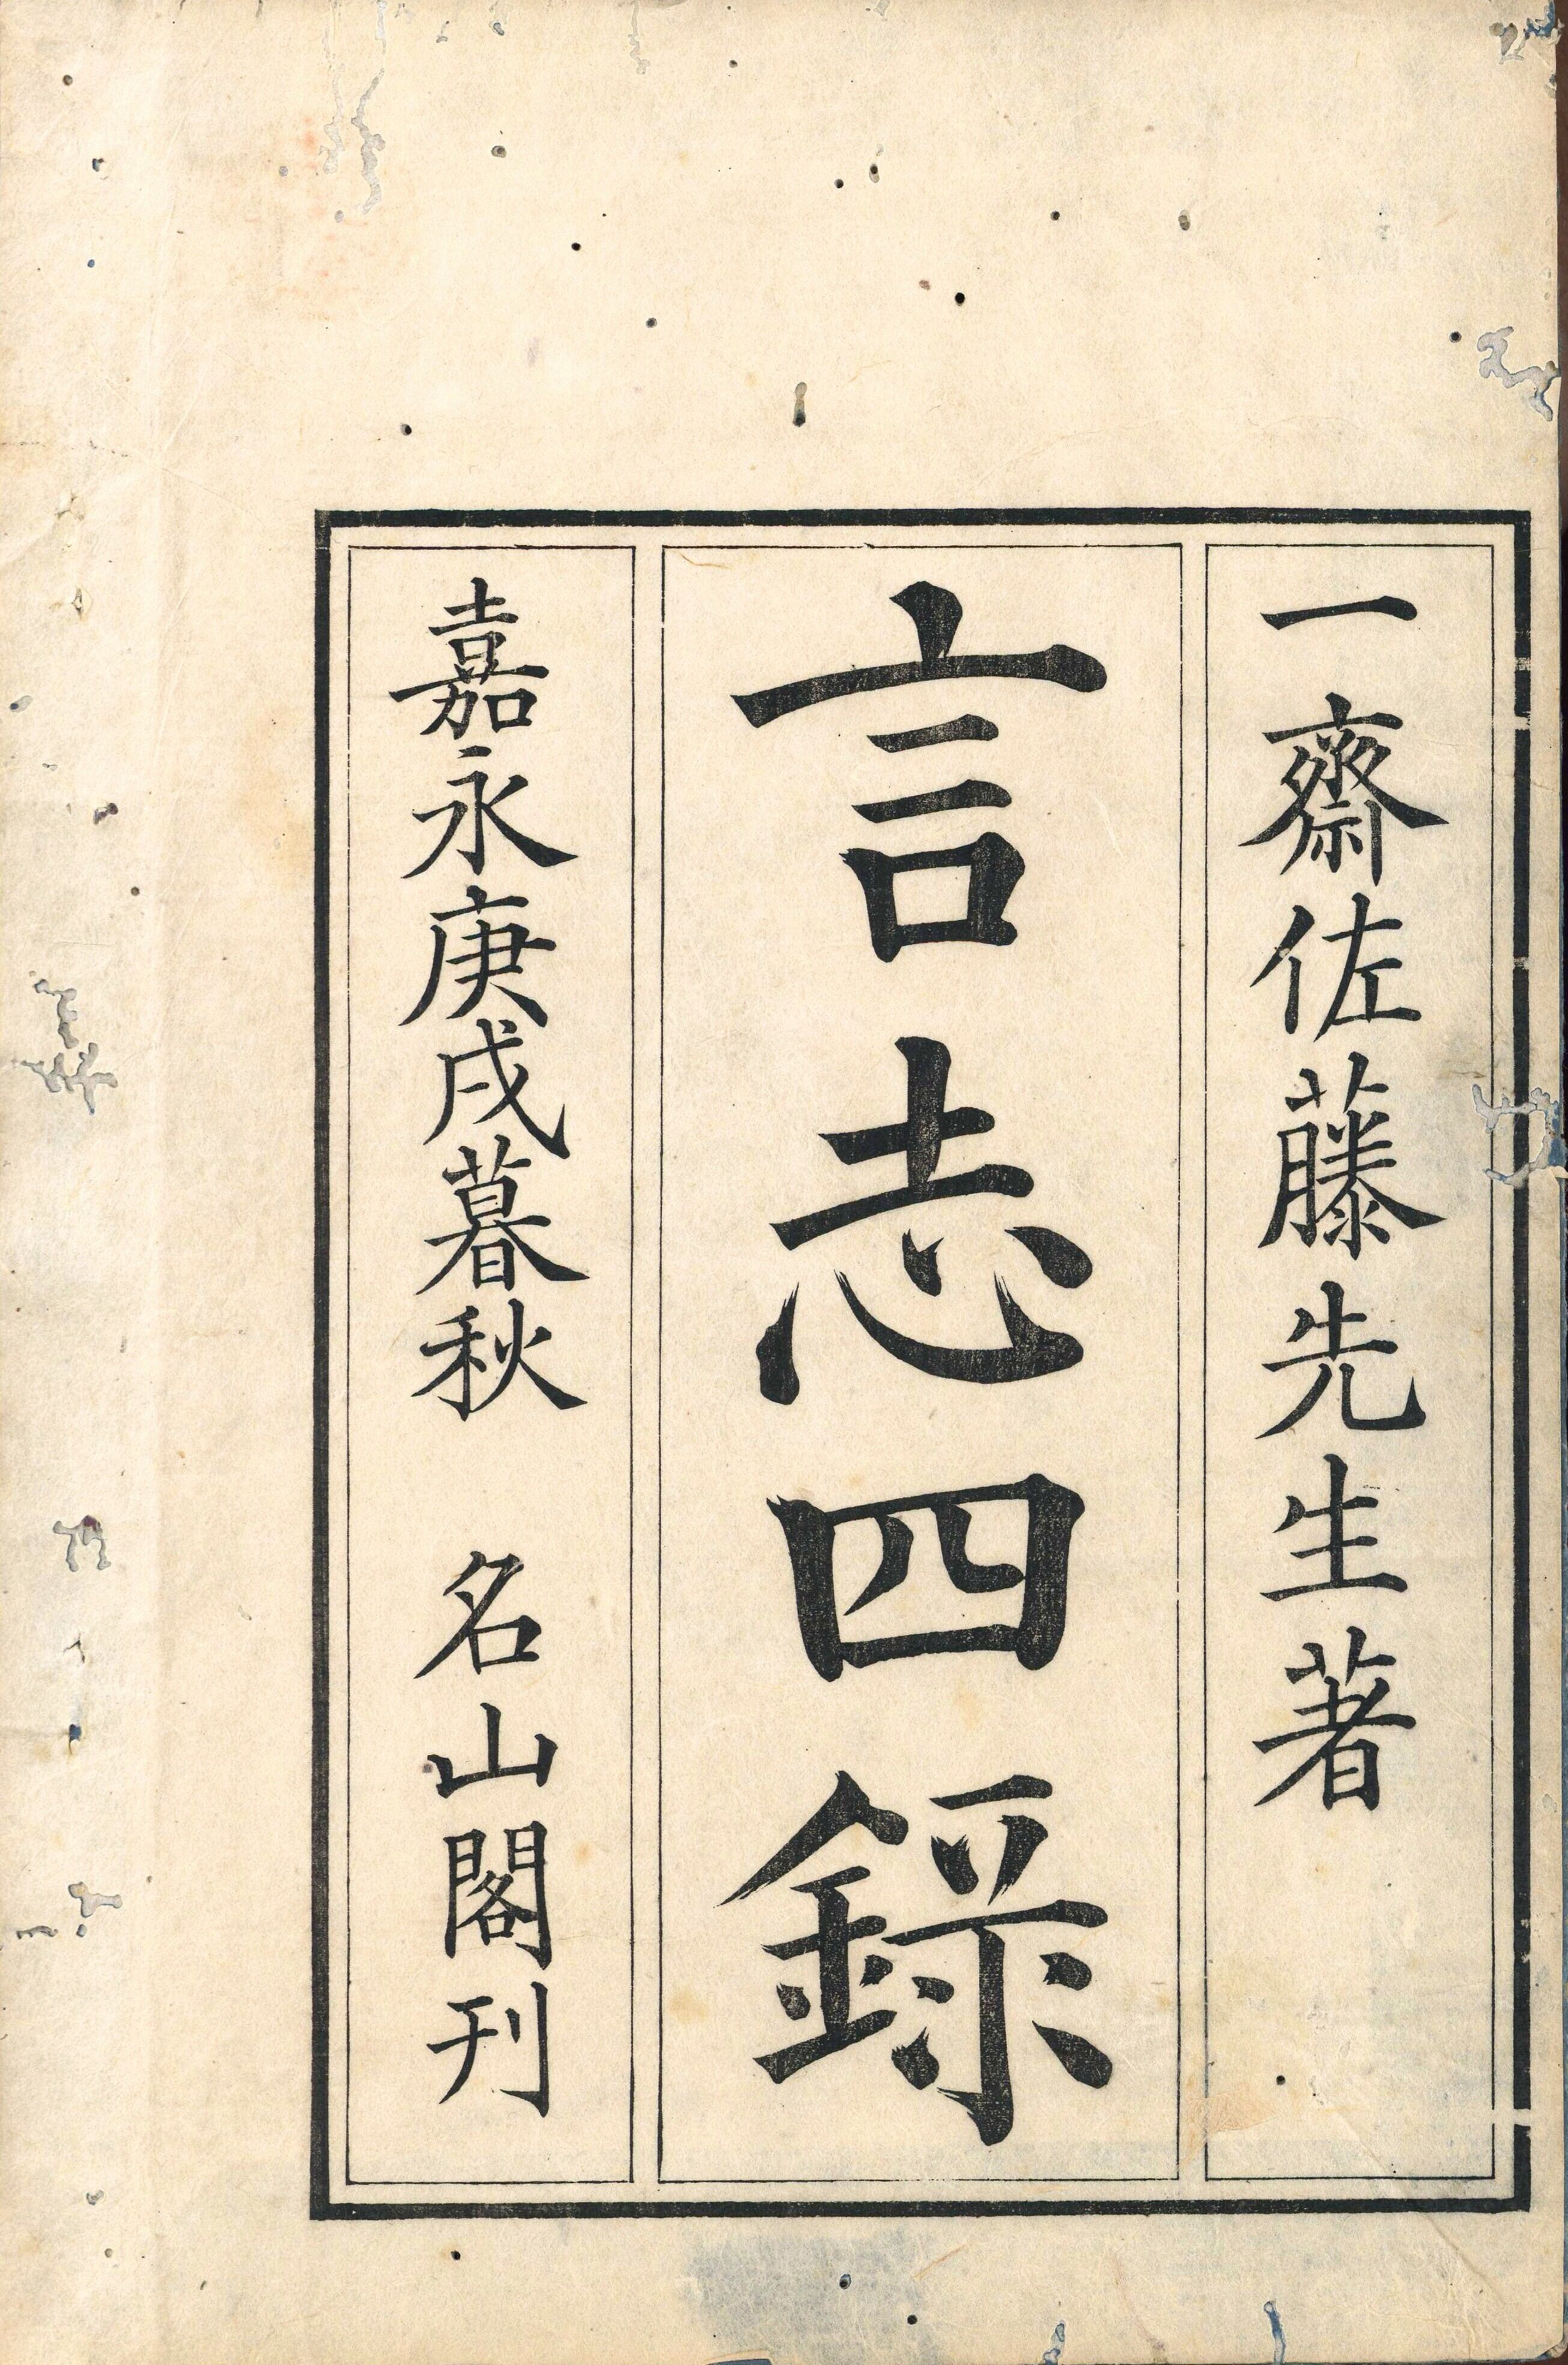 一齋佐藤先生著
言志四錄
嘉永庚戌暮秋　名山閣刊